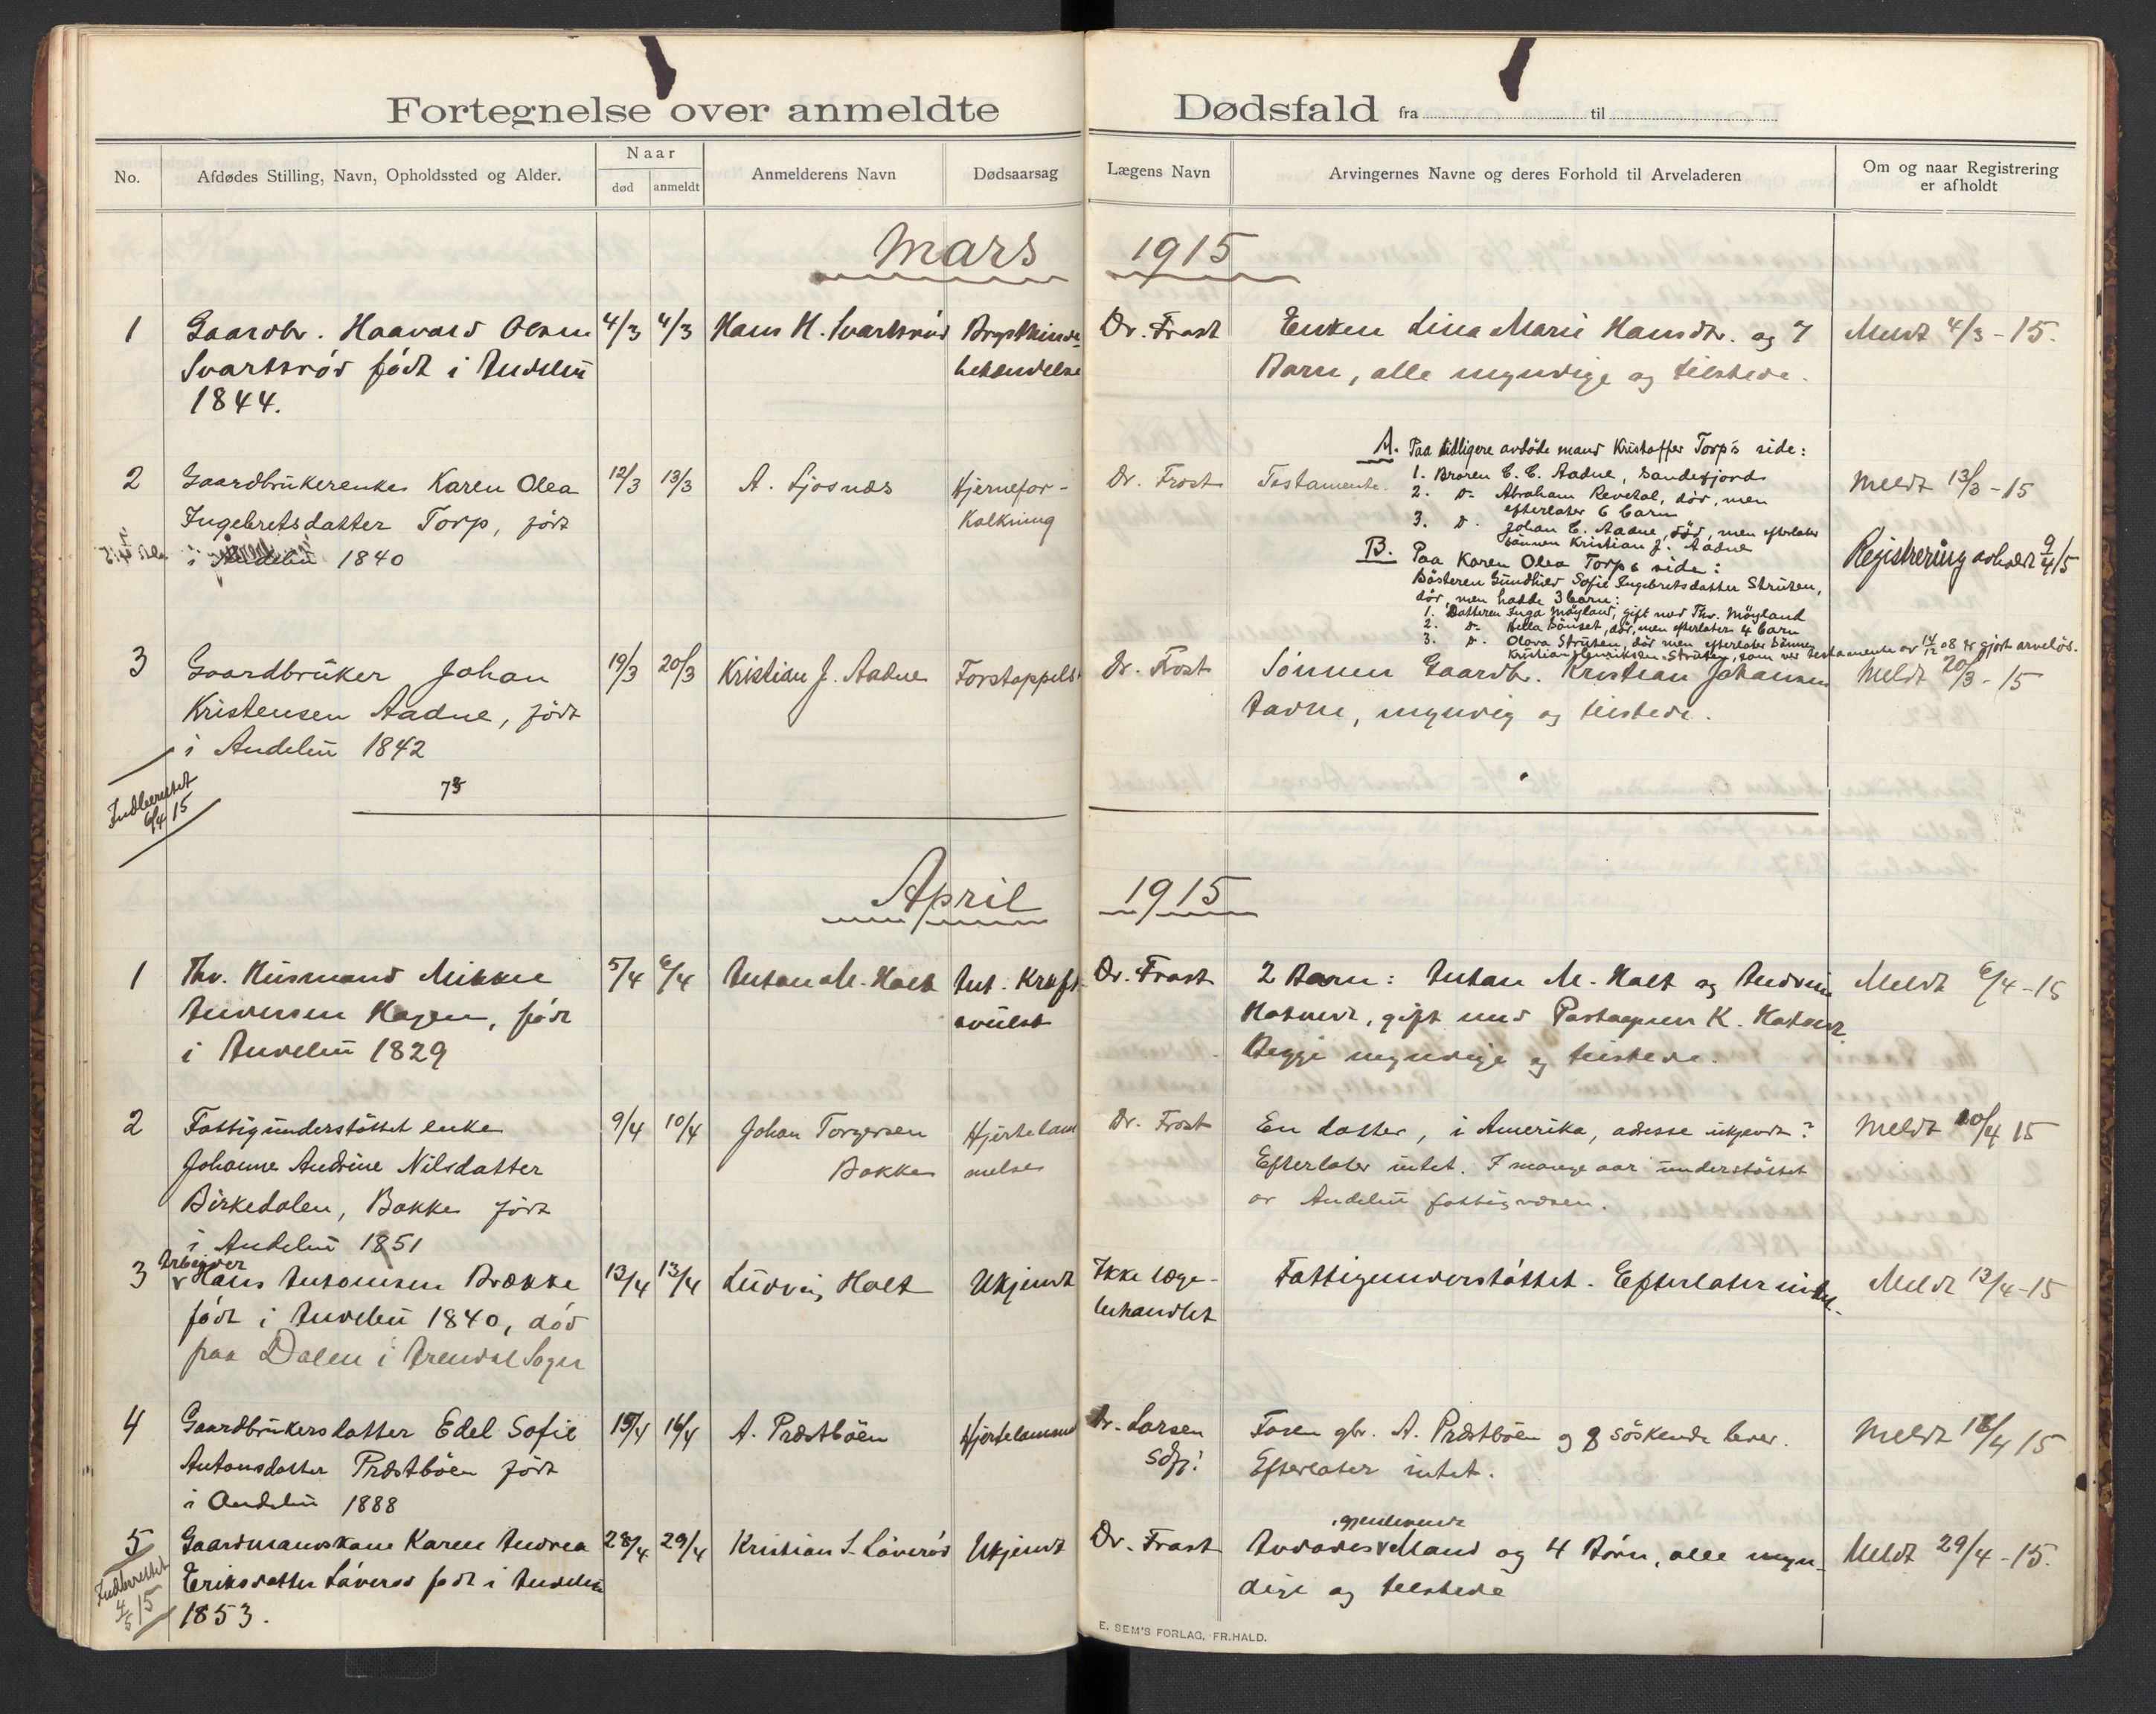 Fortegnelse over anmeldte Dødsfald fra til
No.
Afdødes Stilling, Navn, Opholdssted og Alder.
Naar
død
anmeldt
Anmelderens Navn
Dødsaarsag
Lægens Navn
Arvingernes Navne og deres Forhold til Arveladeren
Om og naar Registrering
er afholdt
Mars 1915
1 Gaardbr. Haavald Olsen 4/3 4/3 Hans H. Svartsrød
Svartsrød født i Andebu
1844.
Dr. Frost Enken Lina Marie Hansdtr. og 7 Meldt 4/3-15.
Barn, alle myndige og tilstede.
2 Gaardbrukerenke Karen Olea 12/3 13/3 A. Sjosnæs Hjernefor-
Ingebretsdatter Torp, født kalkning
i 1840
Dr. Frost Testamente. Meldt 13/3-15
A. Paa tidligere avdøde mand Kristoffer Torp's side:
1. Broren C. C. Aadne, Sandefjord
2. D. Abraham Revetal, død, men
efterlater 6 barn
3. D. Johan C. Aadne, død, men efterlater
sønnen Kristian J. Aadne
B. Paa Karen Olea Torps side:
Søsteren Gundhild Sofie Ingebretsdatter Struten,
død, men hadde 3 barn:
1. Datteren Inga Møyland, gift med Thv. Møyland
2. D. Hella Bønset, død, men efterlater 4 barn
3. D. Olava Struten, død men efterlater sønnen
Kristian Henriksen Struten, som ved testamente av 14/12 08 er gjort arveløs.
Registrering avholdt 9/4 15
3 Gaardbruker Johan 19/3 20/3 Kristian J. Aadne Forstoppelse
Kristensen Aadne, født
i Andebu 1842
Dr. Frost Sønnen Gaardbr. Kristian Johansen Meldt 20/3-15
Aadne, myndig og tilstede.
Indberettet
6/4 15
April 1915
1 Fhv. Husmand Mikkel 5/4 6/4 Anton M. Holt Ant. Kræft-
Andersen Hagen, født svulst
i Andebu 1829
Dr. Frost 2 Barn: Anton M. Holt og Andrine Meldt 6/4-15
gift med K.
Begge myndige og tilstede.
2 Fattigunderstøttet enke 9/4 10/4 Johan Torgersen Hjertelam
Johanne Andrine Nilsdatter Bakke melse
Birkedalen, Bakke født
i Andebu 1851
Dr. Frost En datter, i Amerika, adresse ukjendt? Meldt 10/4 15
Efterlater intet. I mange aar understøttet
av Andebu fattigvæsen.
3 Arbeider
Hans Antonsen Brække 13/4 13/4 Ludvig Holt Ukjendt
født i Andebu 1840, død
paa Dalen i Sogn
Ikke læge- Fattigunderstøttet. Efterlater intet. Meldt 13/4-15
behandlet
4 Gaardbrukersdatter Edel Sofie 15/4 16/4 A. Præstbøen Hjertelammelse
Antonsdatter Præstbøen født
i Andebu 1888
Dr. Larsen Faren gbr. A. Præstbøen og 8 søskende lever. Meldt 16/4 15
Sdfj. Efterlater intet.
5 Gaardmandskone Karen Andrea 28/4 29/4 Kristian L. Løverød Ukjendt
Eriksdatter Løverød født i Andebu
1853.
gjenlevende
Dr. Frost Avdødes Mand og 4 Børn, alle myn- Meldt 29/4-15.
dige og tilstede
Indberettet
4/5 15
E. SEM'S FORLAG, FR.HALD.